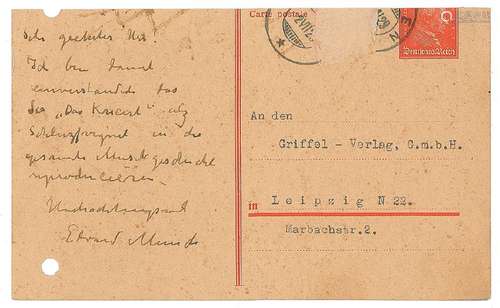 Carte postale
Deutsches Reich
Sehr geehrter Herr
Ich bin damit
einverstanden das
Sie „Das Konzert“ als
in die
gesamte Musikgeschichte
reproduzieren.
Hochachtungsvoll
Edvard Munch
An den
Griffel - Verlag, G.m.b.H.
in Leipzig N 22.
Marbachstr.2.